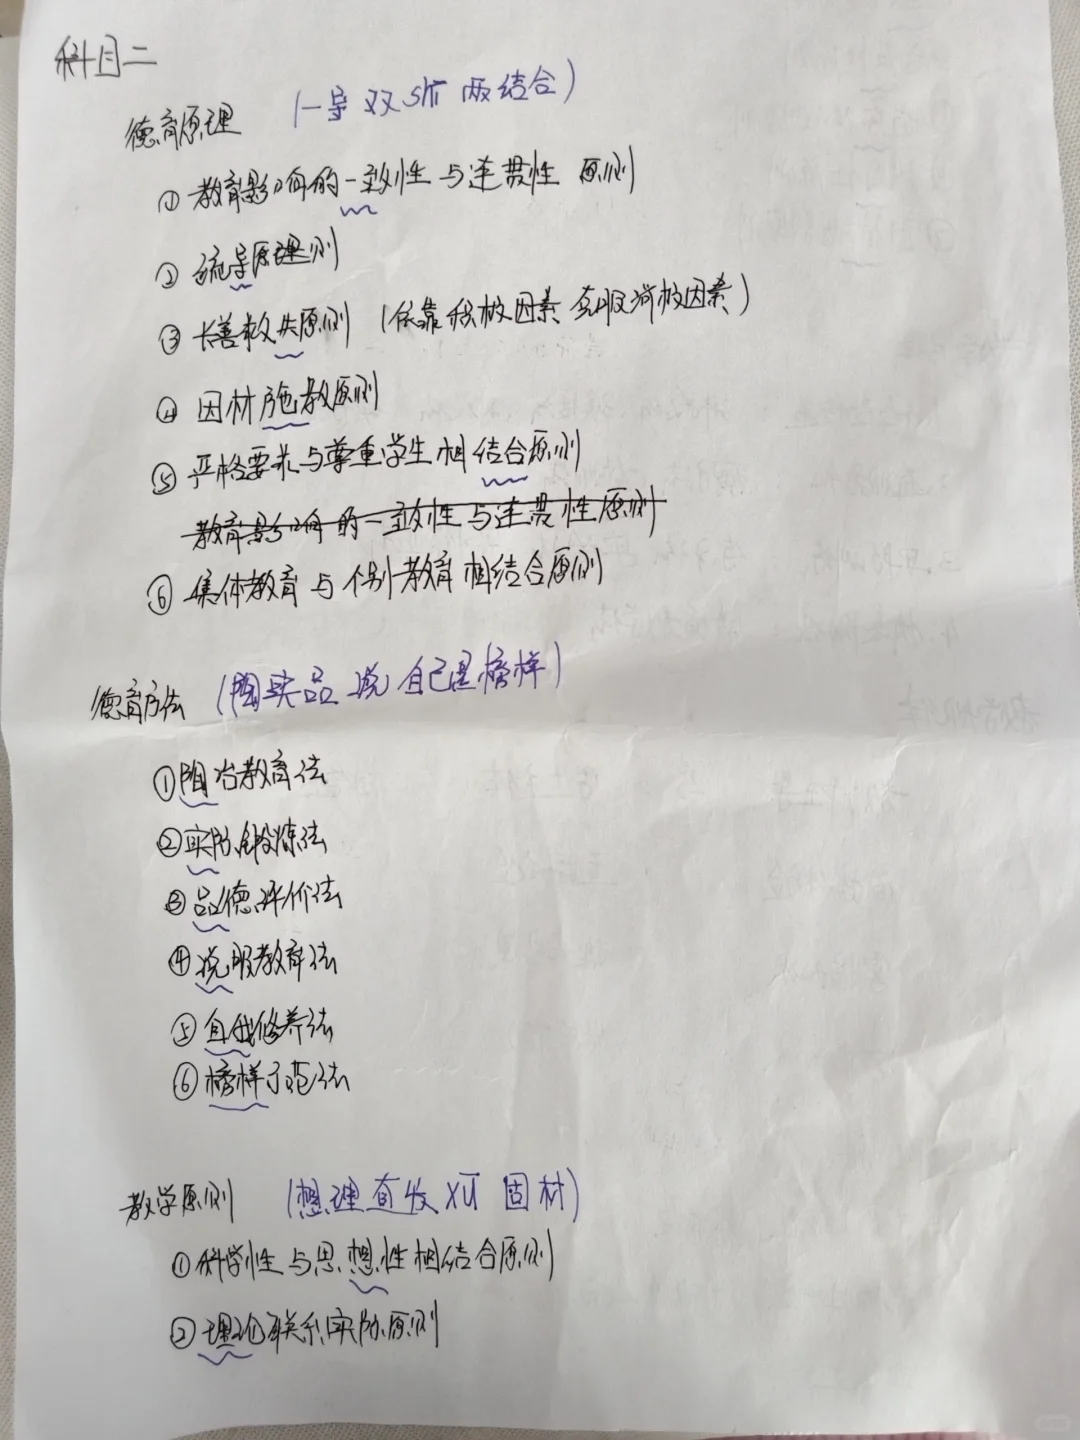 科目二
德育原理 (一导双shī 两结合)
① 教育影响的一致性与连贯性 原则
② 疏导原理则
③ 长善救失原则 (依靠积极因素 克服消极因素)
④ 因材施教原则
⑤ 严格要求与尊重学生相结合原则
教育影响的一致性与连贯性原则
⑥ 集体教育与个别教育相结合原则
德育方法 (陶实品 说 自己是榜样)
①陶冶教育法
②实际锻炼法
③品德评价法
④说服教育法
⑤自我修养法
⑥榜样示范法
教学原则 (想理直收 XU 固材)
①科学性与思想性相结合原则
②理论联系实际原则